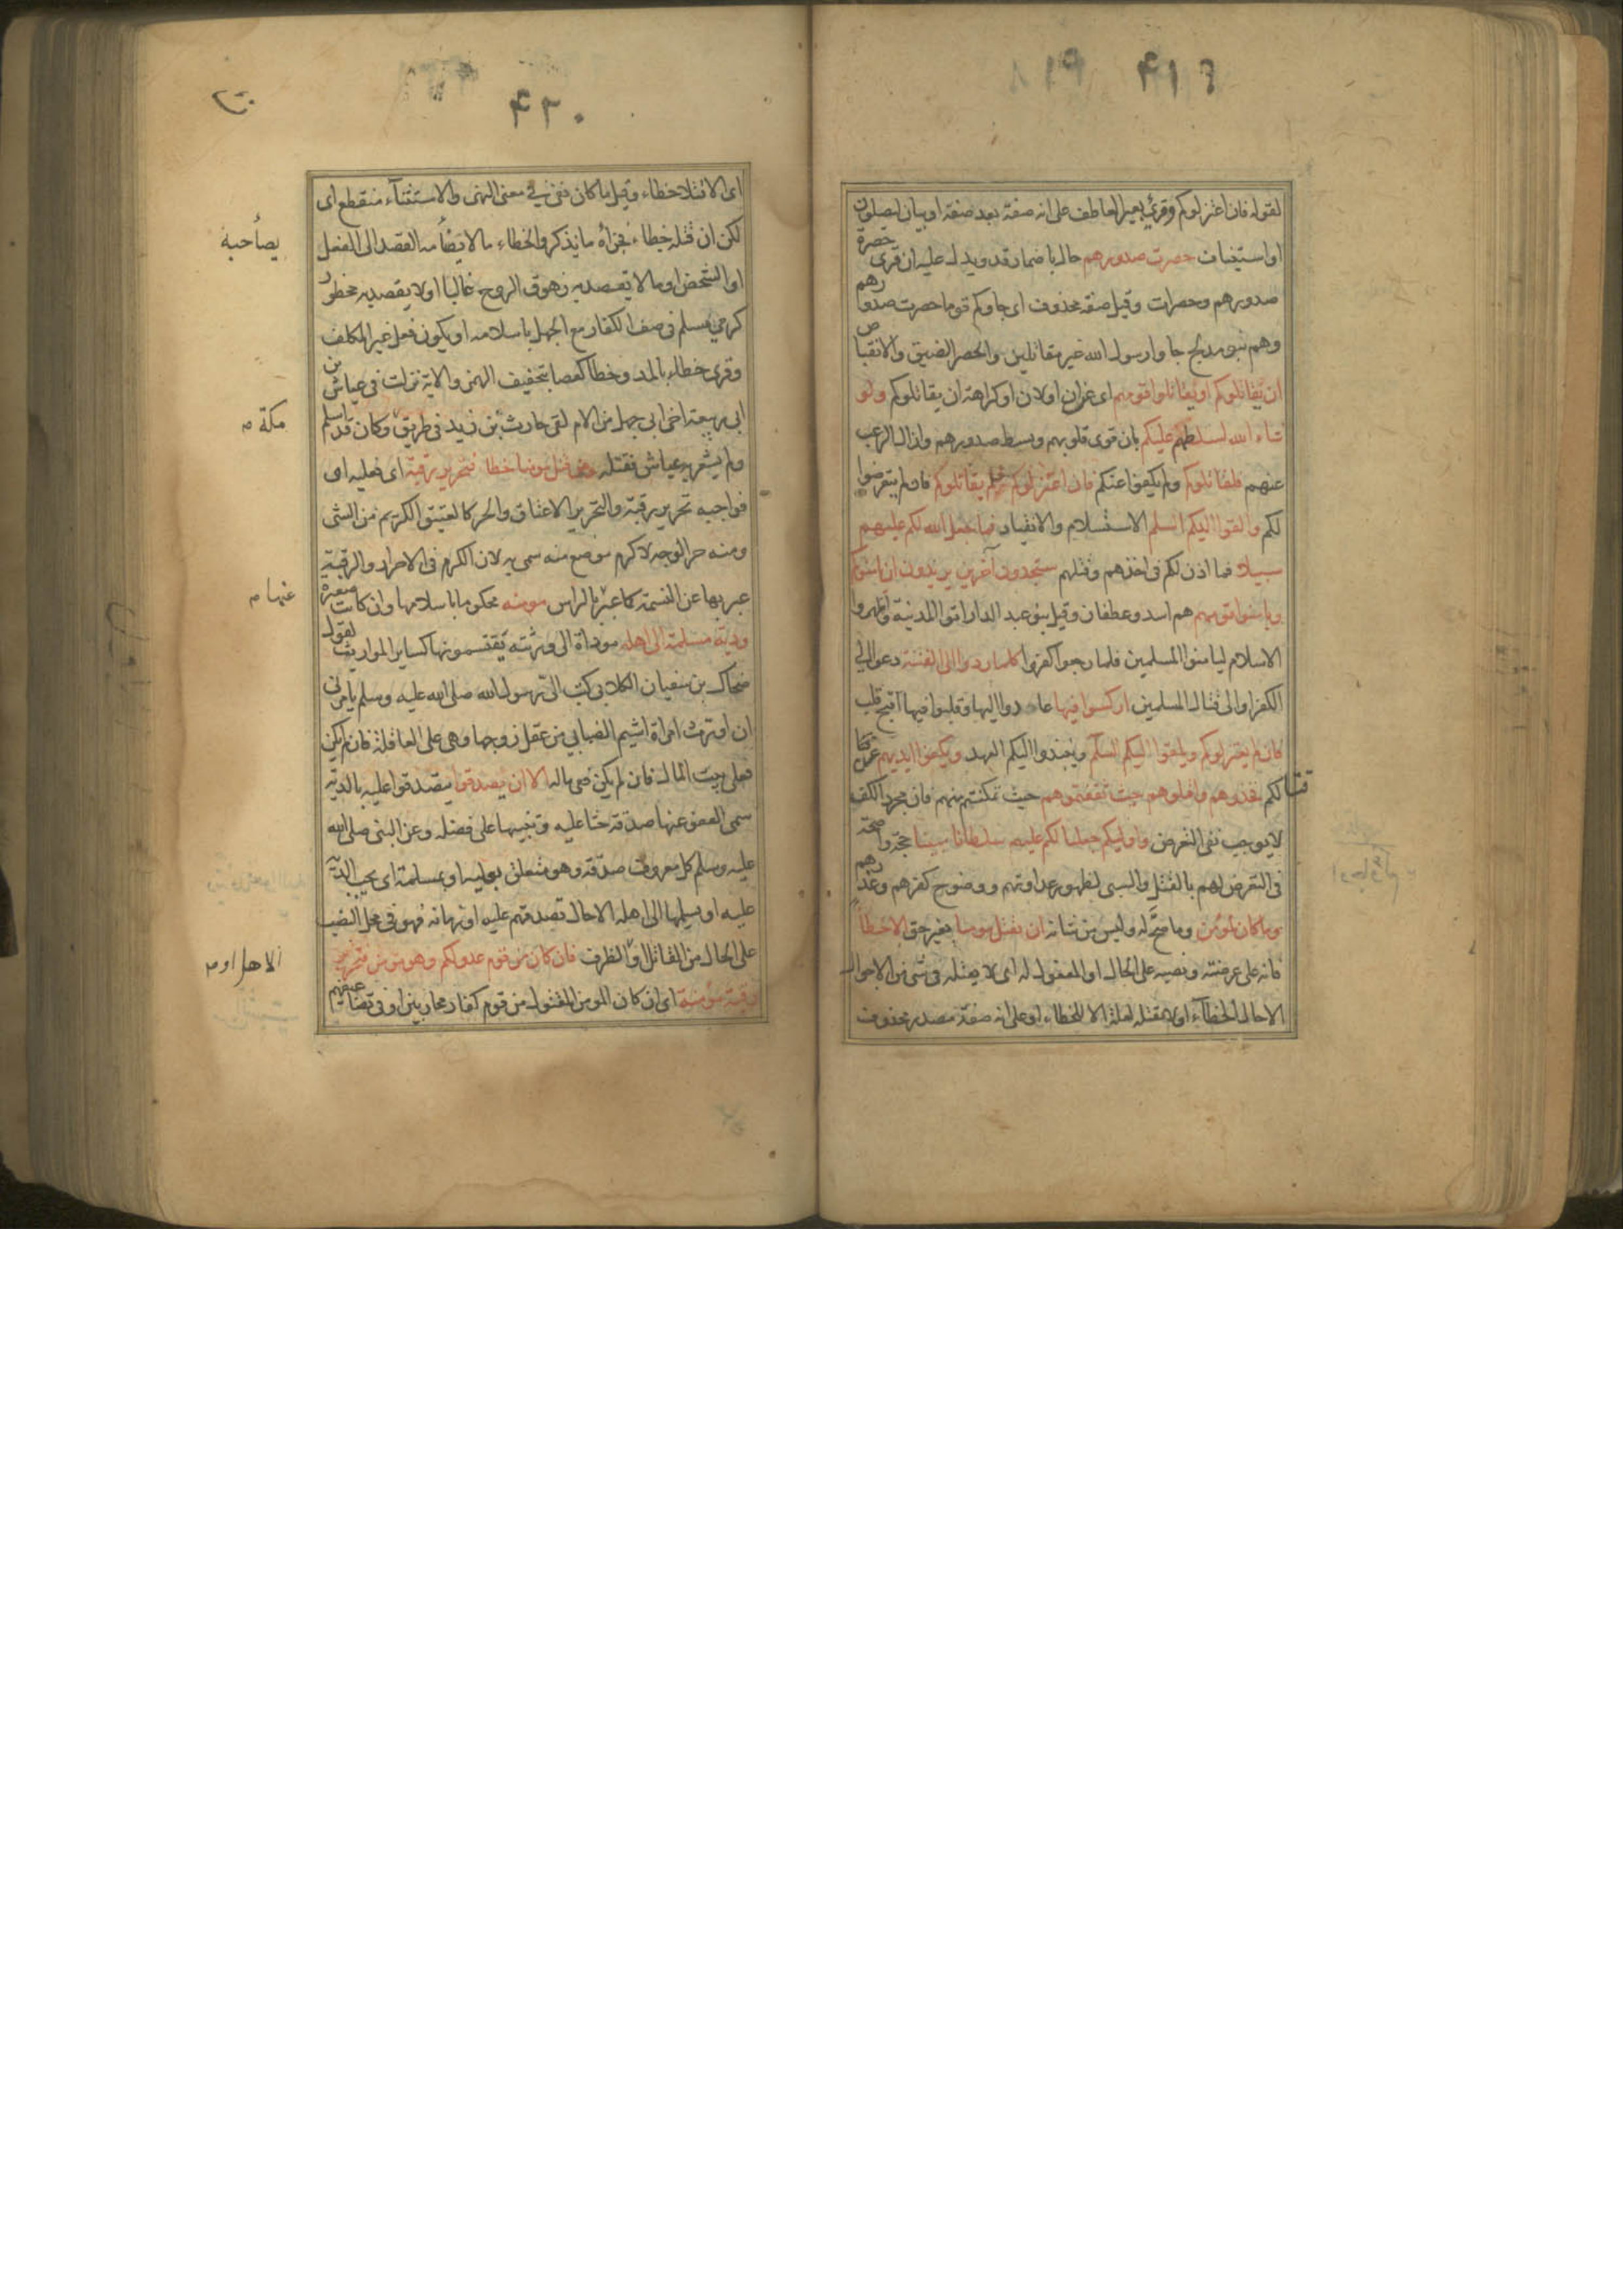 ٤١٩
لقوله فان اعتزلوكم وقرئ بغير العاطف على انه صفة بعد صفة او بيان ليصلون
او استيناف حصرت صدورهم حال باضمار قد ويدل عليه ان قرى حصرة
صدورهم وحصرات وقيل صفة محذوف اى جاوكم قوما حصرت صدورهم
وهم بنو مدلج جاوا رسول الله غير مقاتلين والحصر الضيق والانقباض
ان يقاتلوكم او يقاتلوا قومهم اى عن ان او لان او كراهة ان يقاتلوكم ولو
شاء الله لسلطهم عليكم بان قوى قلوبهم وبسط صدورهم وازال الرعب
عنهم فلقاتلوكم ولم يكفوا عنكم فان اعتزلوكم فلم يقاتلوكم فان لم يتعرضوا
لكم والقوا اليكم السلم الاستسلام والانقياد فما جعل الله لكم عليهم
سبيلا فما اذن لكم فى اخذهم وقتلهم ستجدون آخرين يريدون ان يامنوكم
ويامنوا قومهم هم اسد وعطفان وقيل بنو عبد الدار اتوا المدينة واظهروا
الاسلام ليامنوا المسلمين فلما رجعوا كفروا كلما ردوا الى الفتنة دعوا الى
الكفر او الى قتال المسلمين اركسوا فيها عادوا اليها وقلبوا فيها اقبح قلب
فان لم يعتزلوكم ويلقوا اليكم السلم وينبذوا اليكم العهد ويكفوا ايديهم عن قتا
لكم فخذوهم واقتلوهم حيث ثقفتموهم حيث تمكنتم منهم فان مجرد الكف
لا يوجب نفى التعرض واوليكم جعلنا لكم عليهم سلطانا مبينا حجة واضحة
فى التعرض لهم بالقتل والسبى لظهور عداوتهم ووضوح كفرهم وغدرهم
وما كان لمومن وما صح له وليس من شانه ان يقتل مومنا بغير حق الا خطأ
فانه على عرضته ونصبه على الحال او المفعول له اى لا يقتله فى شى من الاحوال
الا حال الخطاء او لا يقتله لعلة الا للخطاء او على انه صفة مصدر محذوف
٤٢٠
اى الا قتلا خطاء وقيل ما كان نفى فى معنى النهى والاستثناء منقطع اى
لكن ان قتله خطاء فجزاه ما يذكر والخطاء ما لا يضامه القصد الى الفعل
يصاحبه
او الشخص او ما لا يقصد به زهوق الروح غالبا او لا يقصد به محظور
كرمى مسلم فى صف الكفار مع الجهل باسلامه او يكون فعل غير المكلف
وقرى خطاء بالمد وخطا كعصا بتخفيف الهمز والاية نزلت فى عياش بن
ابى ربيعة اخى ابى جهل من الام لقى حارث بن زيد فى طريق وكان قد اسلم
مكة م
ولم يشعر به عياش فقتله ومن قتل مومنا خطا فتحرير رقبة اى فعليه اى
فواجبه تحرير رقبة والتحرير الاعتاق والحر كالعتيق الكريم من الشى
ومنه حر الوجه لاكرم موضع منه سمى به لان الكرم فى الاحرار والرقبة
عبر بها عن النسمة كما عبر بالراس مومنة محكوما باسلامها وان كانت صغيرة
عنها م
ودية مسلمة الى اهله موداة الى ورثته يقتسمونها كساير المواريث لقول
ضحاك بن سفيان الكلابى كتب الى رسول الله صلى الله عليه وسلم يامرنى
ان اورث امراة اشيم الضبابى من عقل زوجها وهى على العاقلة فان لم يكن
فعلى بيت المال فان لم يكن ففى ماله الا ان يصدقوا يتصدقوا عليه بالدية
سمى العفو عنها صدقة حثا عليه وتنبيها على فضله وعن النبى صلى الله
عليه وسلم كل معروف صدقة وهو متعلق بعليه او بمسلمة اى يجب الدية
عليه او يسلمها الى اهله الا حال تصدقهم عليه او زمانه فهو فى محل النصب
على الحال من القاتل او الظرف فان كان من قوم عدو لكم وهو مومن فتحرير
الاهل او م
رقبة مؤمنة اى ان كان المومن المقتول من قوم كفار محاربين او فى تضاعيفهم